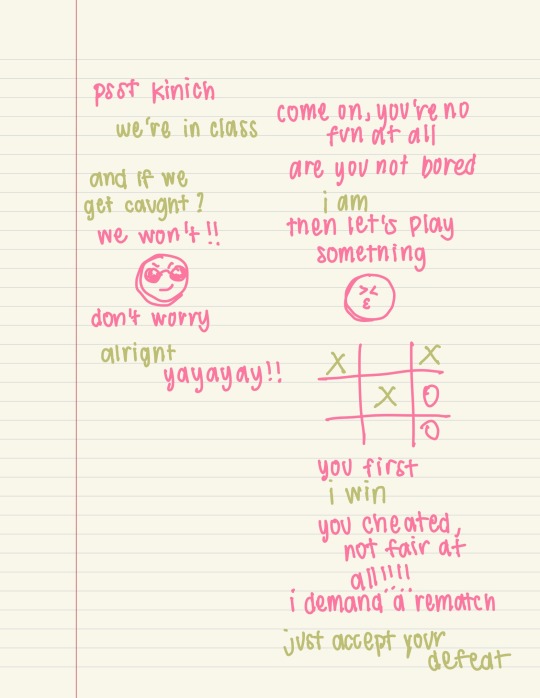 psst kinich
we're in class
come on, you're no
fun at all
are you not bored
i am
then let's play
something
and if we
get caught?
we won't!!
don't worry
alright
yayayay!!
X X
X O
O
you first
i win
you cheated,
not fair at
all!!!!
i demand a rematch
just accept your
defeat